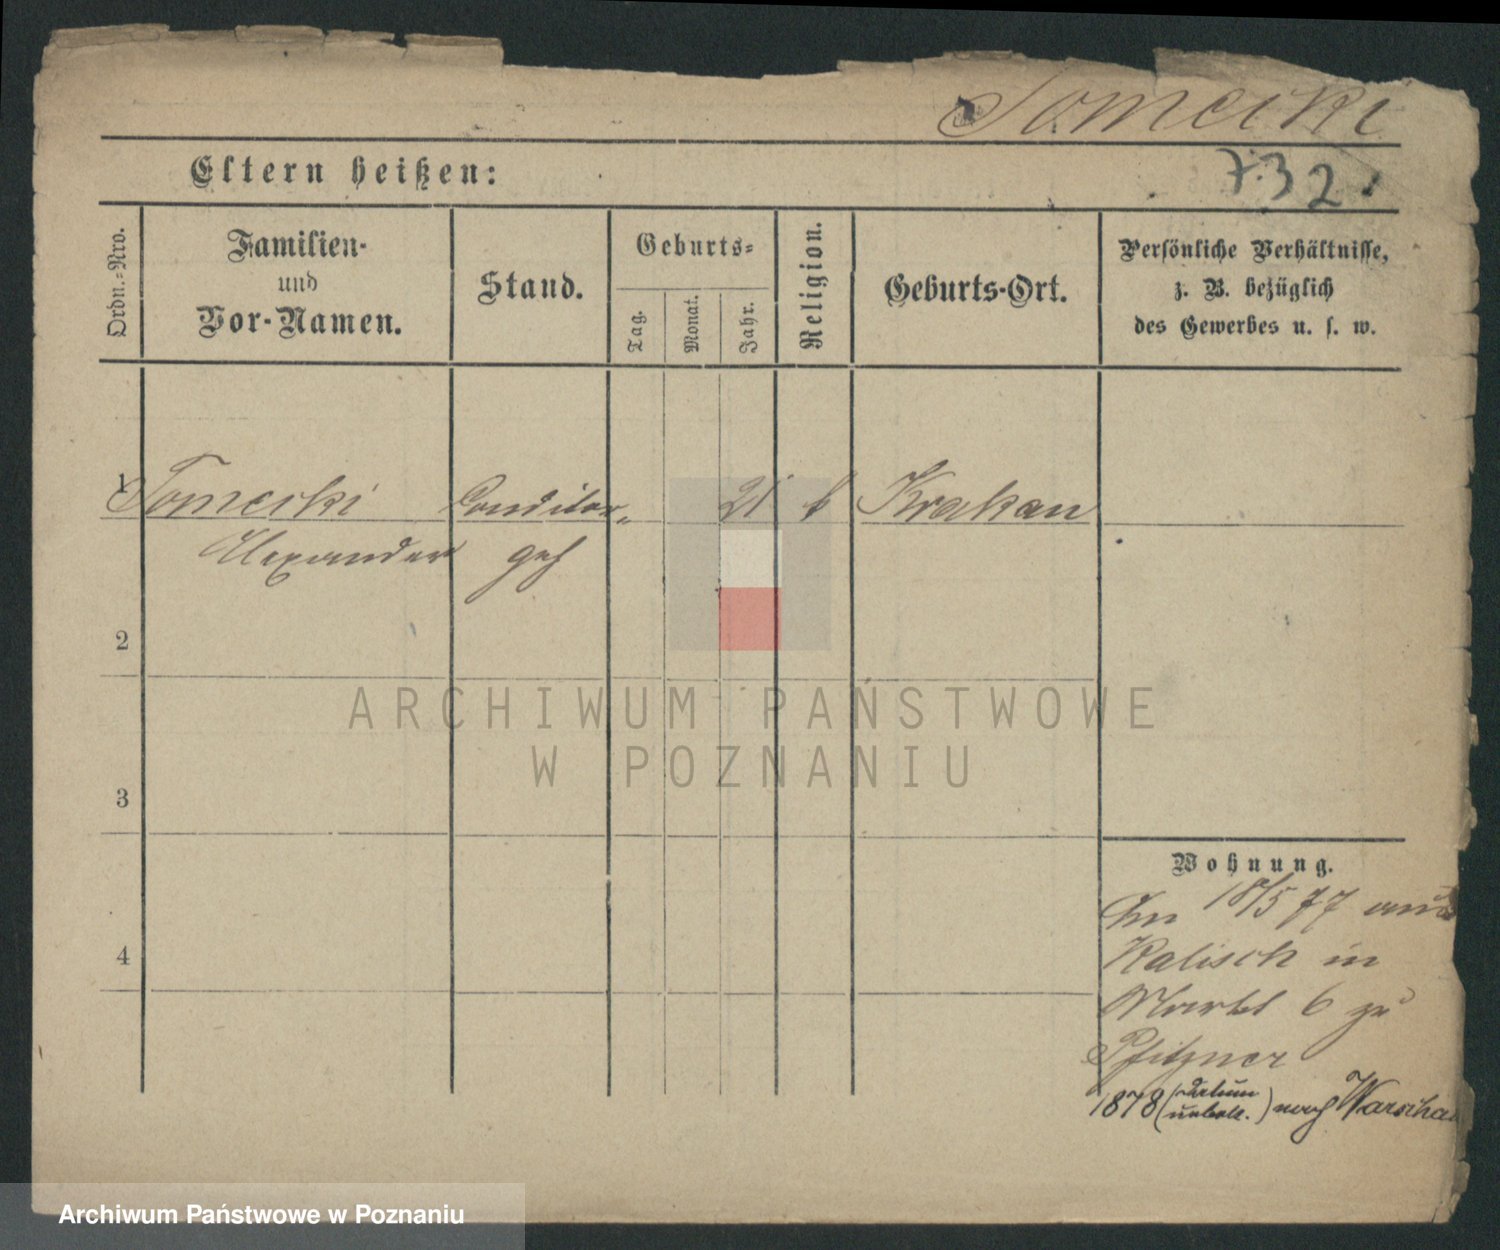 Tomciki
732
Eltern heißen:
Ordn.-Nro.
Familien-
und
Vor-Namen.
Stand.
Geburts-
Tag.
Monat.
Jahr.
Religion.
Geburts-Ort.
Persönliche Verhältnisse,
z. B. bezüglich
des Gewerbes u. s. w.
1 Tomciki Conditor- 21 k Krakau
Alexander geh
2
3
4
Wohnung.
Am 18/5 77 aus
Kalisch in
Markt 6 zu
Pfitzner
1878 (Datum
unbek.) nach Warschau
ARCHIWUM PAŃSTWOWE
W POZNANIU
Archiwum Państwowe w Poznaniu